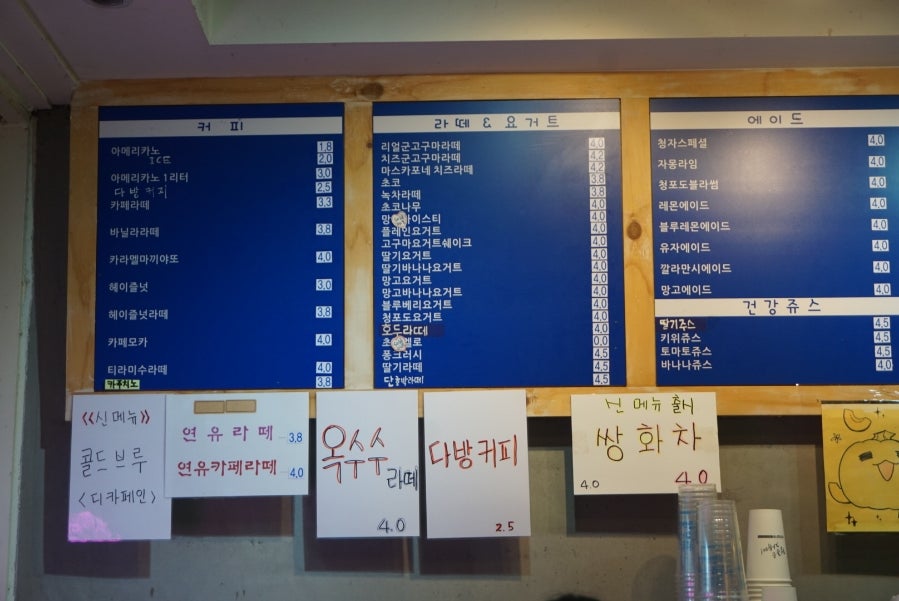 커 피
아메리카노 1.8
ICE 2.0
아메리카노 1리터 3.0
다방커피 2.5
카페라떼 3.3
바닐라라떼 3.8
카라멜마끼야또 4.0
헤이즐넛 3.0
헤이즐넛라떼 3.8
카페모카 4.0
티라미수라떼 4.0
카푸치노 3.8
라떼 & 요거트
리얼군고구마라떼 4.0
치즈군고구마라떼 4.2
마스카포네 치즈라떼 4.2
초코 3.8
녹차라떼 3.8
초코나무 4.0
망 아이스티 4.0
플레인요거트 4.0
고구마요거트쉐이크 4.0
딸기요거트 4.0
딸기바나나요거트 4.0
망고요거트 4.0
망고바나나요거트 4.0
블루베리요거트 4.0
청포도요거트 4.0
호두라떼 0.0
초 멜로 0.0
퐁크러시 4.5
딸기라떼 4.5
단호박라떼 4.5
에이드
청자스페셜 4.0
자몽라임 4.0
청포도블라썸 4.0
레몬에이드 4.0
블루레몬에이드 4.0
유자에이드 4.0
깔라만시에이드 4.0
망고에이드 4.0
건강쥬스
딸기주스 4.5
키위쥬스 4.5
토마토쥬스 4.5
바나나쥬스 4.0
《신메뉴》
콜드브루
<디카페인>
연유라떼 3.8
연유카페라떼 4.0
옥수수
라떼
4.0
다방커피
2.5
신 메뉴 출시
쌍화차
4.0 4.0